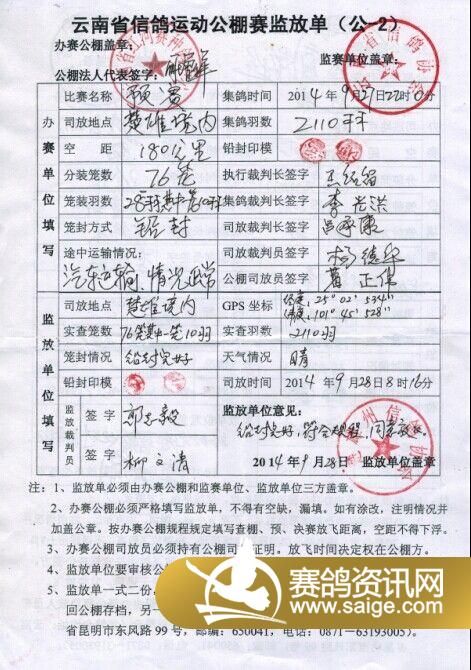 云南省信鸽运动公棚赛监放单（公-2）
办赛公棚盖章： 监赛单位盖章：
公棚法人代表签字：
办赛单位填写
比赛名称 预赛 集鸽时间 2014年9月27日22时0分
司放地点 楚雄境内 集鸽羽数 2110羽
空 距 180公里 铅封印模
分装笼数 76笼 执行裁判长签字
笼装羽数 28羽其中一笼10羽 集鸽裁判长签字 李光洪
笼封方式 铅封 司放裁判长签字 吕承康
途中运输情况： 司放裁判员签字 杨德华
汽车运输，情况正常 公棚司放员签字 葛正伟
监放单位填写
司放地点 楚雄境内 GPS 坐标 经度：25°02′534″
纬度：101°45′528″
实查笼数 76笼其中一笼10羽 实查羽数 2110羽
笼封情况 铅封完好 天气情况 晴
铅封印模 司放时间 2014年9月28日8时16分
监放裁判员
签 字 郭志毅 监放单位意见：
铅封完好，符合规程，同意放飞。
签 字 柳文清 2014年9月28日 监放单位盖章
注：1、监放单必须由办赛公棚和监赛单位、监放单位三方盖章。
2、办赛公棚必须严格填写监放单，不得有空缺，漏填。如有涂改，注明情况并
加盖公章。按办赛公棚规程规定填写查棚、预、决赛放飞距离，空距不得下浮。
3、办赛公棚司放员必须持有公棚司放证明。放飞时间决定权在公棚方。
4、监放单位要审核公
5、监放单一式二份，
回公棚存档，另一
省昆明市东风路 99 号，邮编：650041，电话：0871-63193005）。
赛鸽资讯网
www.saige.com